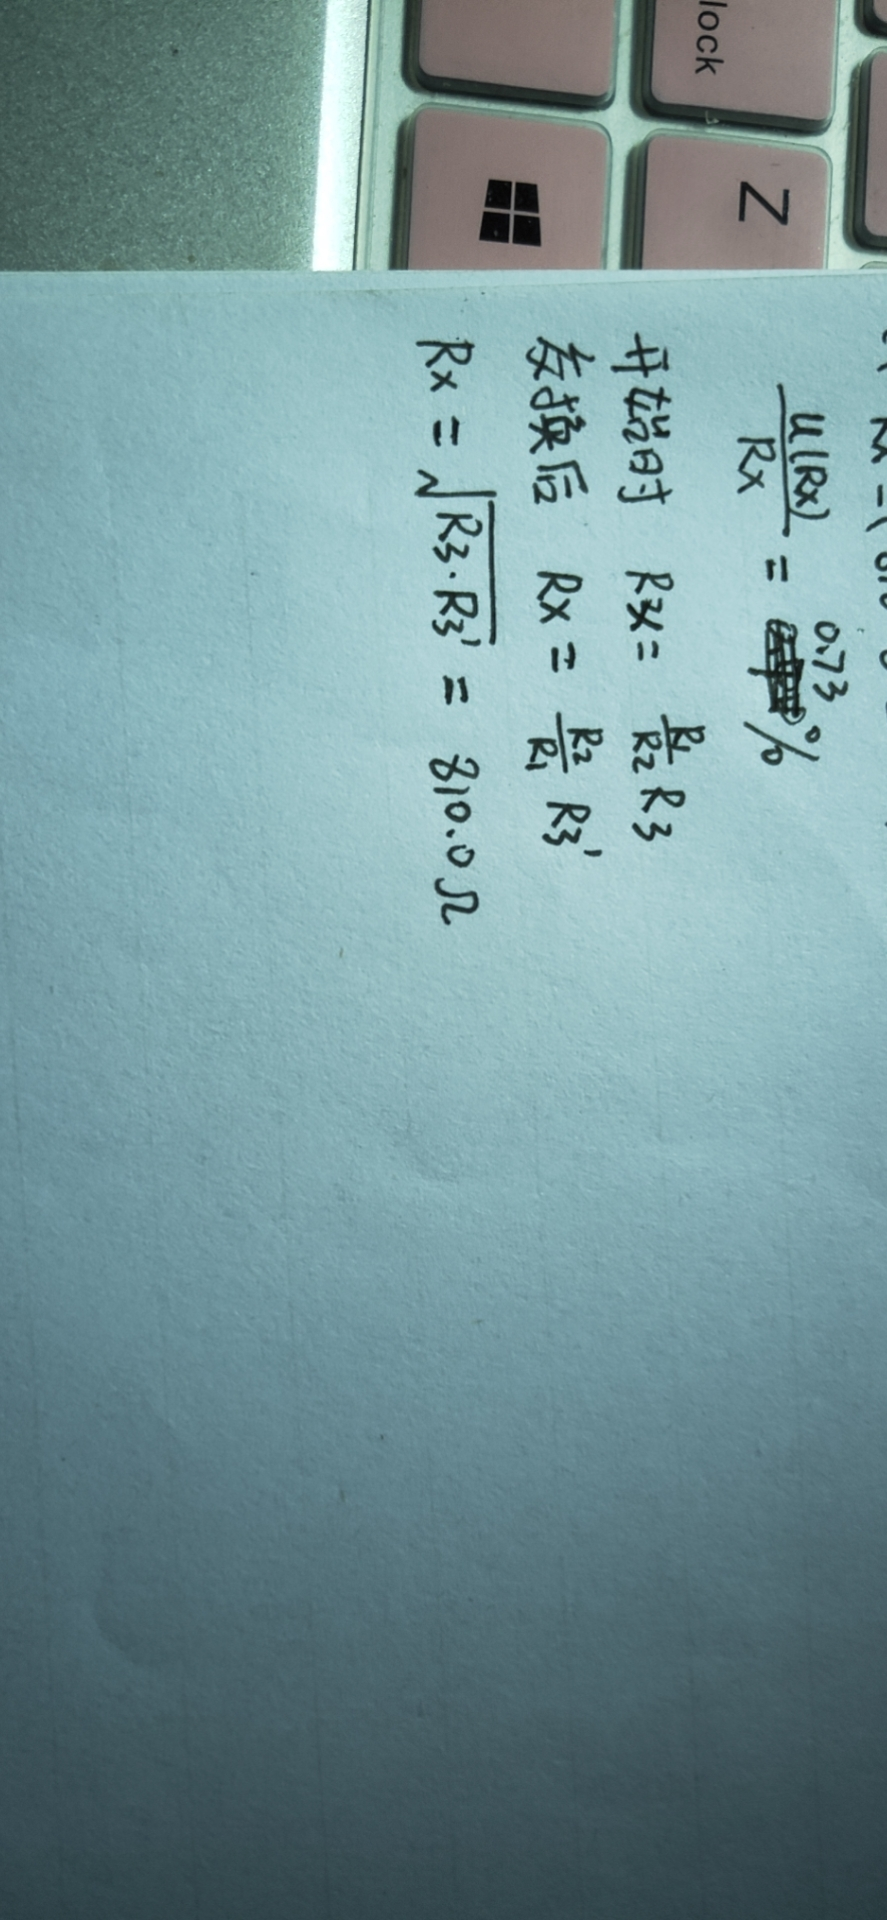 lock
Z
u(Rx)/Rx = 0.73 %
开始时 Rx = R1/R2 R3
交换后 Rx = R2/R1 R3'
Rx = √(R3·R3') = 810.0Ω